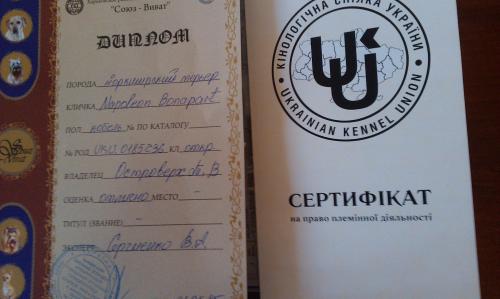 "Союз - Виват"
ДИПЛОМ
ПОРОДА Йоркширский терьер
КЛИЧКА Napoleon Bonapart
ПОЛ кобель № ПО КАТАЛОГУ
№ РОД. UKU.0185236 КЛ. откр.
ВЛАДЕЛЕЦ Островерх
ОЦЕНКА отлично МЕСТО -
ТИТУЛ (ЗВАНИЕ) -
ЭКСПЕРТ Сергиенко В.А
КІНОЛОГІЧНА СПІЛКА УКРАЇНИ
UKU
UKRAINIAN KENNEL UNION
СЕРТИФІКАТ
на право племінної діяльності